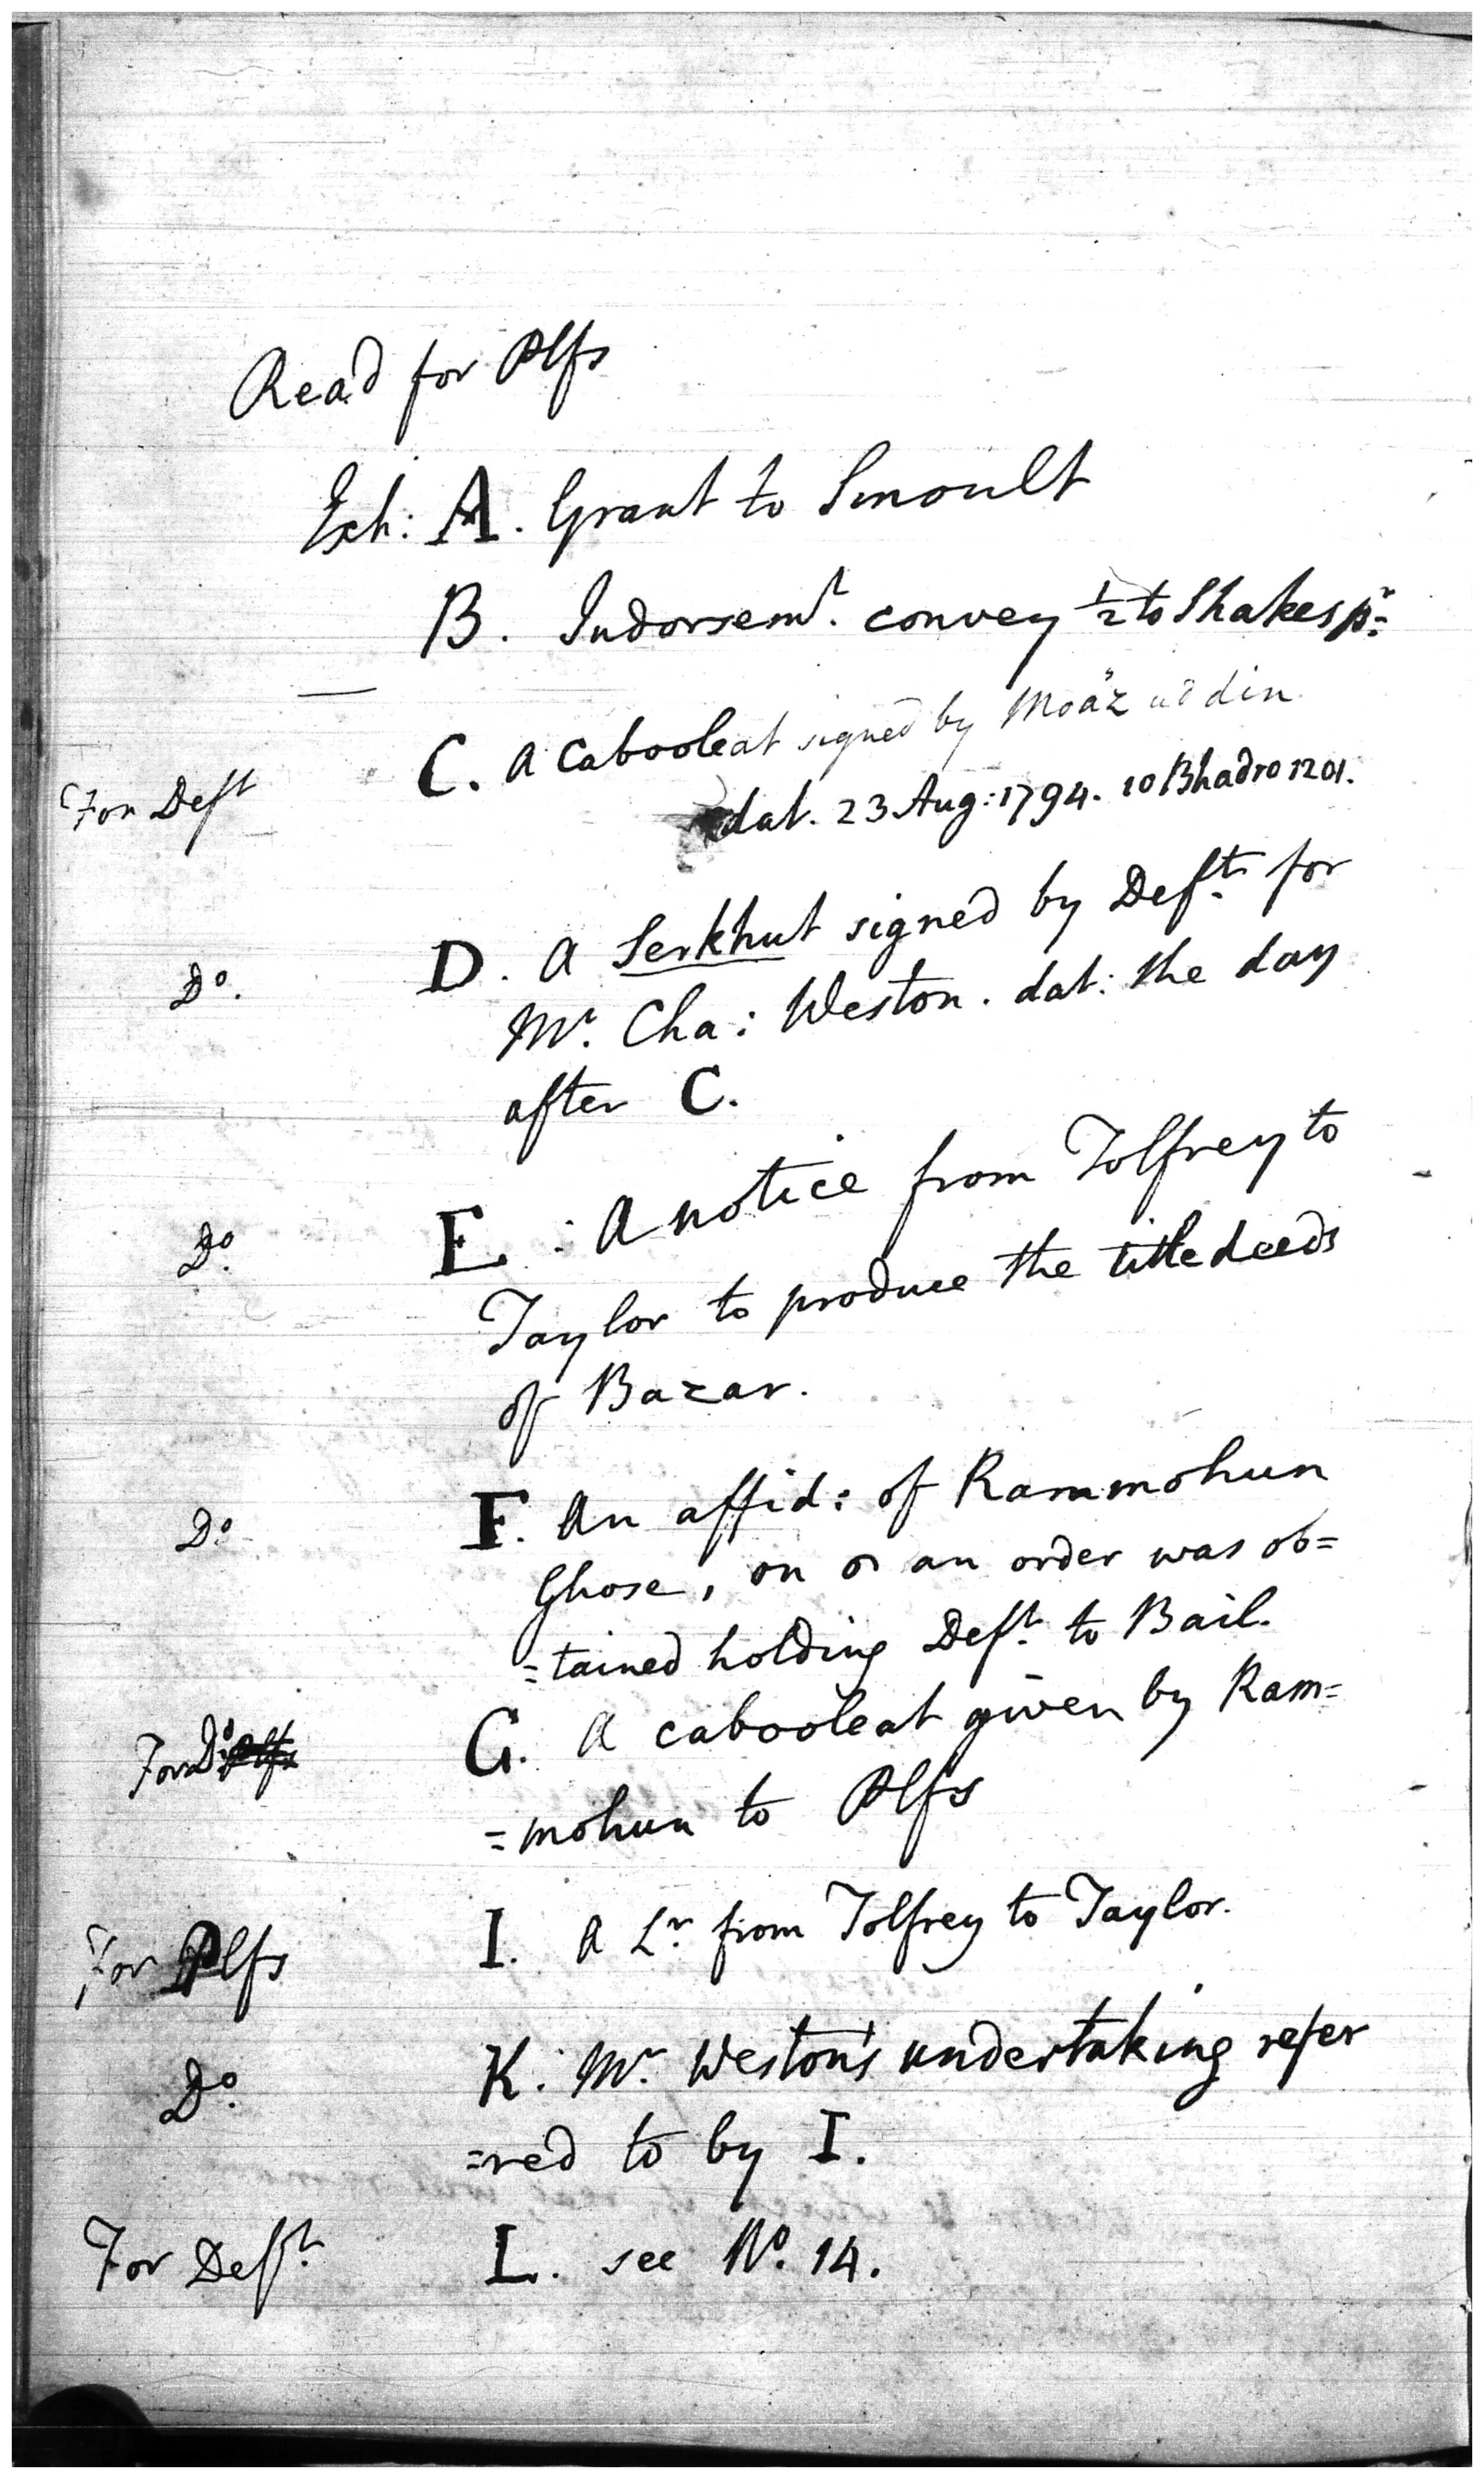 Read for Plfs
Exh: A. Grant to Smoult
B. Indorsemt. convey 1/2 to Shakespr:
C. A Cabooleat signed by Moaz ud din
For Deft
dat. 23 Aug: 1794. 10 Bhadro 1201.
D. A Serkhut signed by Deft. for
Do.
Mr. Cha: Weston. dat: the day
after C.
E. A notice from Tolfrey to
Do.
Taylor to produce the title deeds
of Bazar.
Do. F. An affid: of Rammohun
Ghose, on an order was ob=
=tained holding Deft. to Bail.
For Do. G. A cabooleat given by Ram=
=mohun to Plfs
For Plfs I. A Lr. from Tolfrey to Taylor.
Do. K. Mr. Weston's undertaking refer
=red to by I.
For Deft. L. see No. 14.